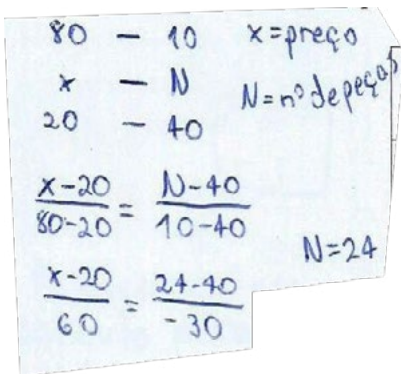 80 — 10 x=preço
x — N N=nº de peças
20 — 40
x-20 / 80-20 = N-40 / 10-40
N=24
x-20 / 60 = 24-40 / -30